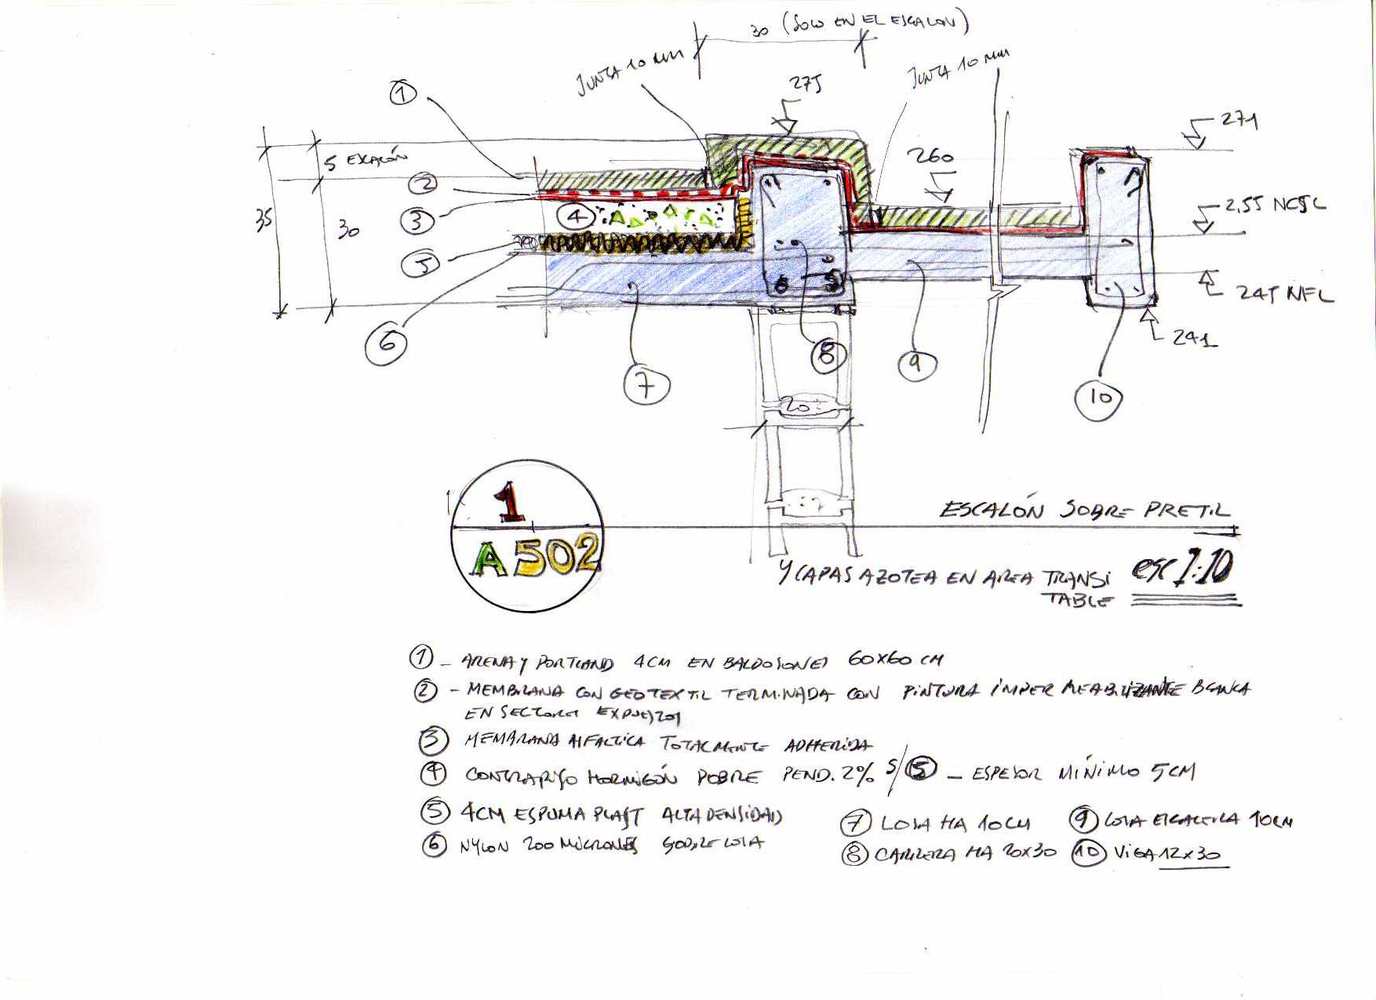 30 (SOLO EN EL ESCALON)
JUNTA 10 mm
275
JUNTA 10 mm
1
271
5 ESCALÓN
260
2
3
4
35
30
2,55 NCSL
5
245 NFL
241
6
7
8
9
10
20
1
A502
ESCALÓN SOBRE PRETIL
Y CAPAS AZOTEA EN AREA TRANSI
TABLE
esc 1:10
1 - ARENA Y PORTLAND 4CM EN BALDOSONES 60X60 CM
2 - MEMBRANA CON GEOTEXTIL TERMINADA CON PINTURA IMPERMEABILIZANTE BLANCA
EN SECTORES EXPUESTOS
3 MEMBRANA ASFALTICA TOTALMENTE ADHERIDA
4 CONTRAPISO HORMIGÓN POBRE PEND. 2% S/5 - ESPESOR MÍNIMO 5CM
5 4CM ESPUMA PLAST ALTA DENSIDAD
6 NYLON 200 MICRONES SOBRE LOSA
7 LOSA HA 10CM
8 CARRERA HA 20X30
9 LOSA ESCALERA 10CM
10 VIGA 12X30